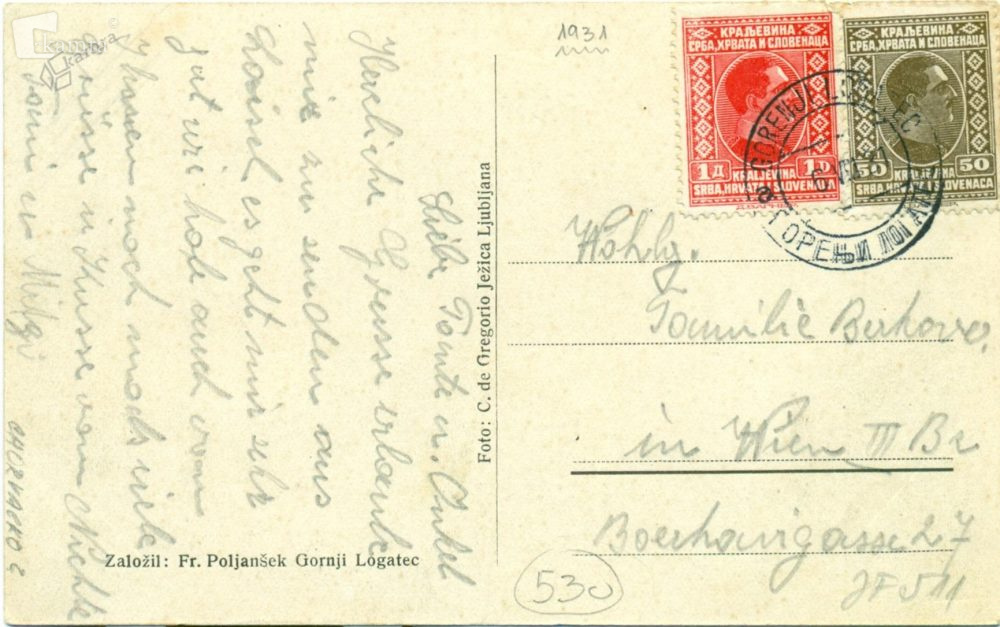 kamra
1931
КРАЉЕВИНА
СРБА, ХРВАТА И СЛОВЕНАЦА
1 Д 1 D
KRALJEVINA
SRBA, HRVATA I SLOVENACA
КРАЉЕВИНА
СРБА, ХРВАТА И СЛОВЕНАЦА
50 50
KRALJEVINA
SRBA, HRVATA I SLOVENACA
GORENJI LOGATEC
6. VII. 31
a
ГОРЕЊИ ЛОГАТЕЦ
Liebe Tante u. Onkel
Herzliche Grüsse erlaube
mir zu senden aus
es geht mir sehr
gut wir habe auch von
Ihnen noch
Grüsse u Küsse von Nichte
Foto: C. de Gregorio Ježica Ljubljana
Založil: Fr. Poljanšek Gornji Logatec
Wohlg.
Familie
in Wien III Bz
Boerhavigasse 27
530
JF 511